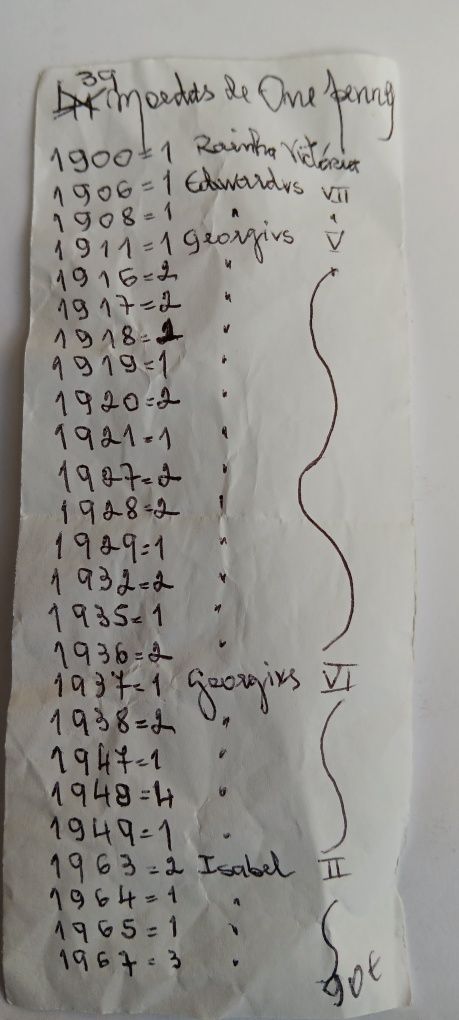 39 Moedas de One penny
1900=1 Rainha Victória
1906=1 Edwardvs VII
1908=1 " "
1911=1 Georgivs V
1916=2 " "
1917=2 "
1918=2 "
1919=1 "
1920=2 "
1921=1 "
1927=2 "
1928=2 "
1929=1 "
1932=2 "
1935=1 "
1936=2 "
1937=1 Georgivs VI
1938=2 "
1947=1 "
1948=4 "
1949=1 "
1963=2 Isabel II
1964=1 "
1965=1 "
1967=3 "
90€